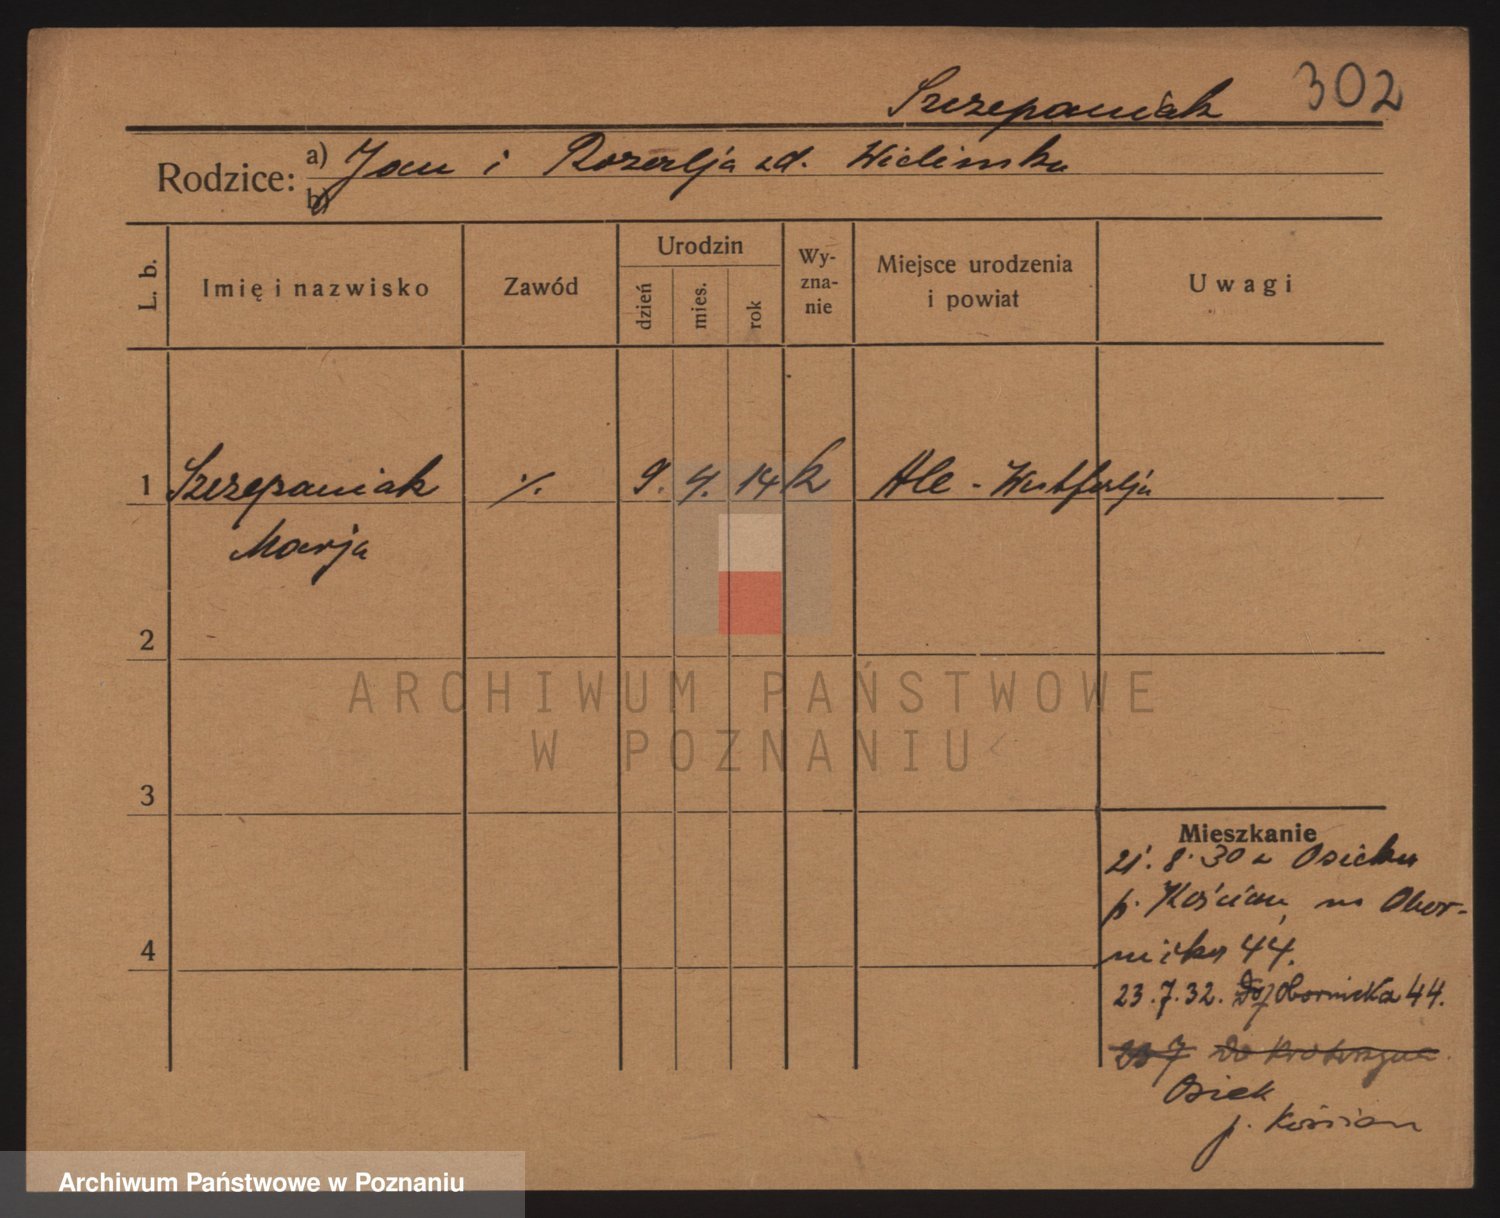 Szczepaniak 302
Rodzice: a) Jan i Rozalja zd. Wielińska
b)
L. b. Imię i nazwisko Zawód Urodzin dzień mies. rok Wy-zna-nie Miejsce urodzenia i powiat Uwagi
1 Szczepaniak ./. 9. 4. 14 k - Westfalja
Marja
2
ARCHIWUM PAŃSTWOWE
W POZNANIU
3
Mieszkanie
21. 8. 30 z Osieka
p. Kościan, na Obor-
4
nicka 44.
23.7.32. Obornicka 44.
Do
Osiek
p. Kościan
Archiwum Państwowe w Poznaniu